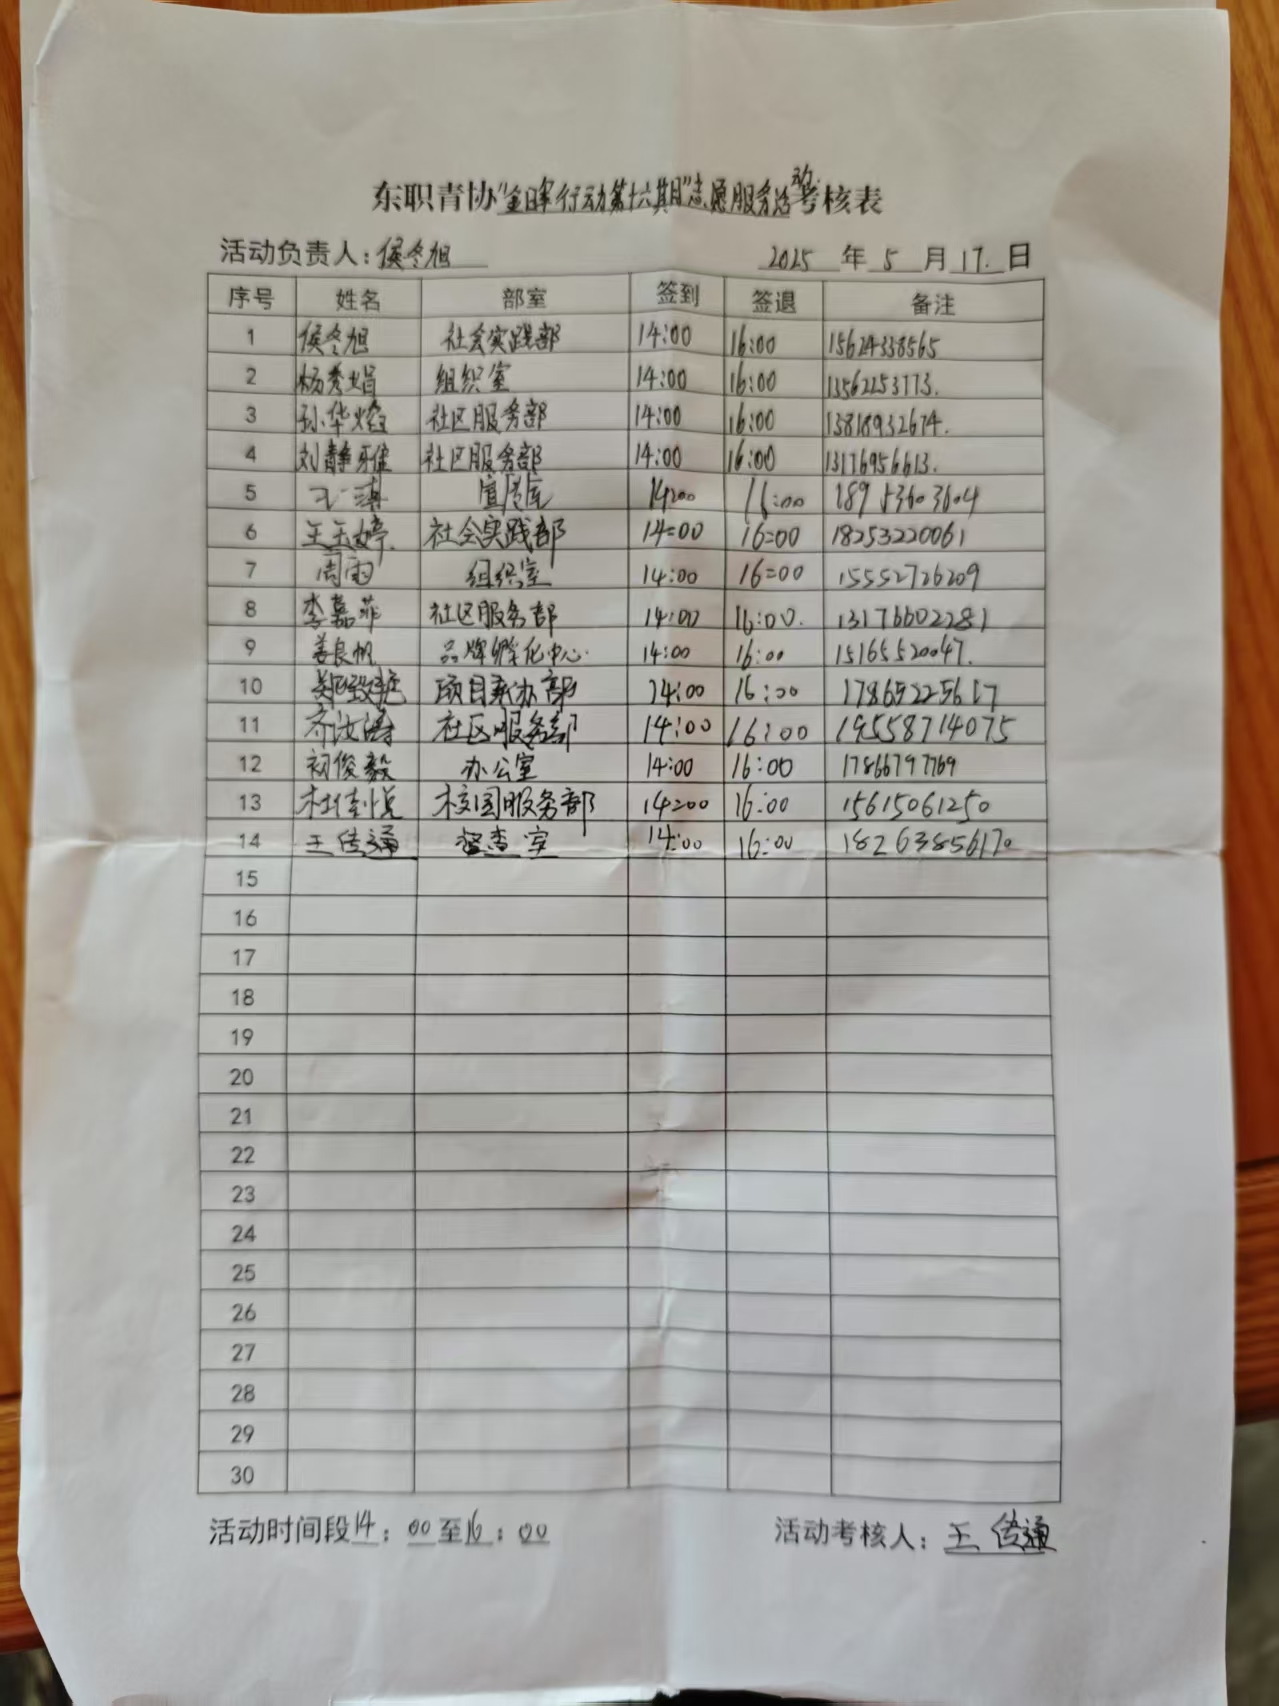 东职青协"金晖行动第十六期"志愿服务活动考核表
活动负责人：侯冬旭 2025 年 5 月 17 日
序号 姓名 部室 签到 签退 备注
1 侯冬旭 社会实践部 14:00 16:00 15624338565
2 杨秀娟 组织室 14:00 16:00 13562253773.
3 孙华 社区服务部 14:00 16:00 13818932674.
4 刘静雅 社区服务部 14:00 16:00 13176956613.
5 王涛 14:00 16:00 18953603604
6 王玉婷 社会实践部 14:00 16:00 18253220061
7 周雨 组织室 14:00 16:00 15552726209
8 李嘉菲 社区服务部 14:00 16:00. 13176602281
9 姜良帆 品牌孵化中心 14:00 16:00 15165520047.
10 项目承办部 14:00 16:00 17865225617
11 齐汝涛 社区服务部 14:00 16:00 19558714075
12 初俊毅 办公室 14:00 16:00 17866797769
13 杜佳悦 校园服务部 14:00 16:00 15615061250
14 王传通 督查室 14:00 16:00 18263856170
15
16
17
18
19
20
21
22
23
24
25
26
27
28
29
30
活动时间段14：00至16：00 活动考核人：王传通